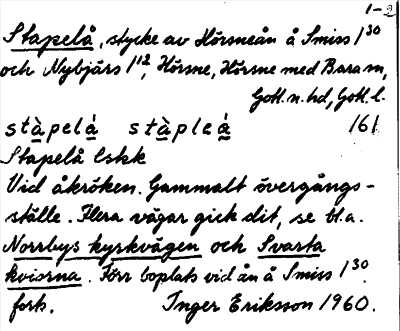 1-2
Stapelå, stycke av Hörsneån å Smiss 1³⁰
och Nybjärs 1¹², Hörsne, Hörsne med Bara sn,
Gotl. n. hd, Gotl. l.
stàpelá stàpleá 161
Stapelå lskk
Vid åkröken. Gammalt övergångs-
ställe. Flera vägar gick dit, se bl.a.
Norrbys kyrkvägen och Svarta
kviorna. Förr boplats vid ån å Smiss 1³⁰.
forts. Inger Eriksson 1960.